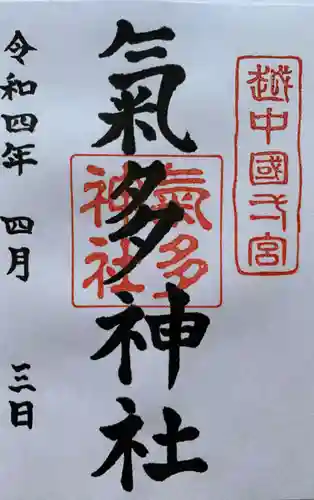 越中國一宮
氣多神社
氣多
神社
令和四年 四月 三日